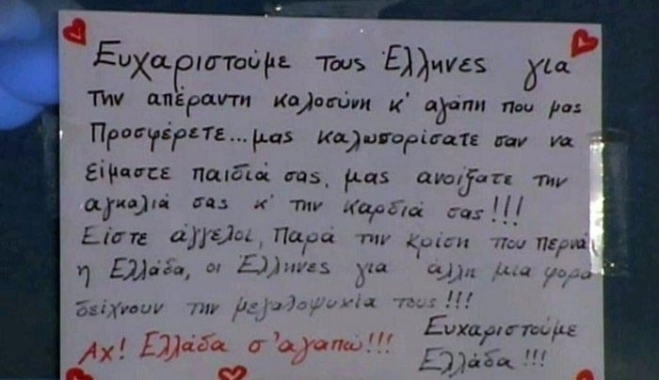 Ευχαριστούμε τους Έλληνες για
την απέραντη καλοσύνη κ' αγάπη που μας
Προσφέρετε... μας καλωσορίσατε σαν να
είμαστε παιδιά σας, μας ανοίξατε την
αγκαλιά σας κ' την καρδιά σας!!!
Είστε άγγελοι, Παρά την κρίση που περνά
η Ελλάδα, οι Έλληνες για άλλη μια φορά
δείχνουν την μεγαλοψυχία τους!!!
Αχ! Ελλάδα σ' αγαπώ!!!
Ευχαριστούμε
Ελλάδα!!!